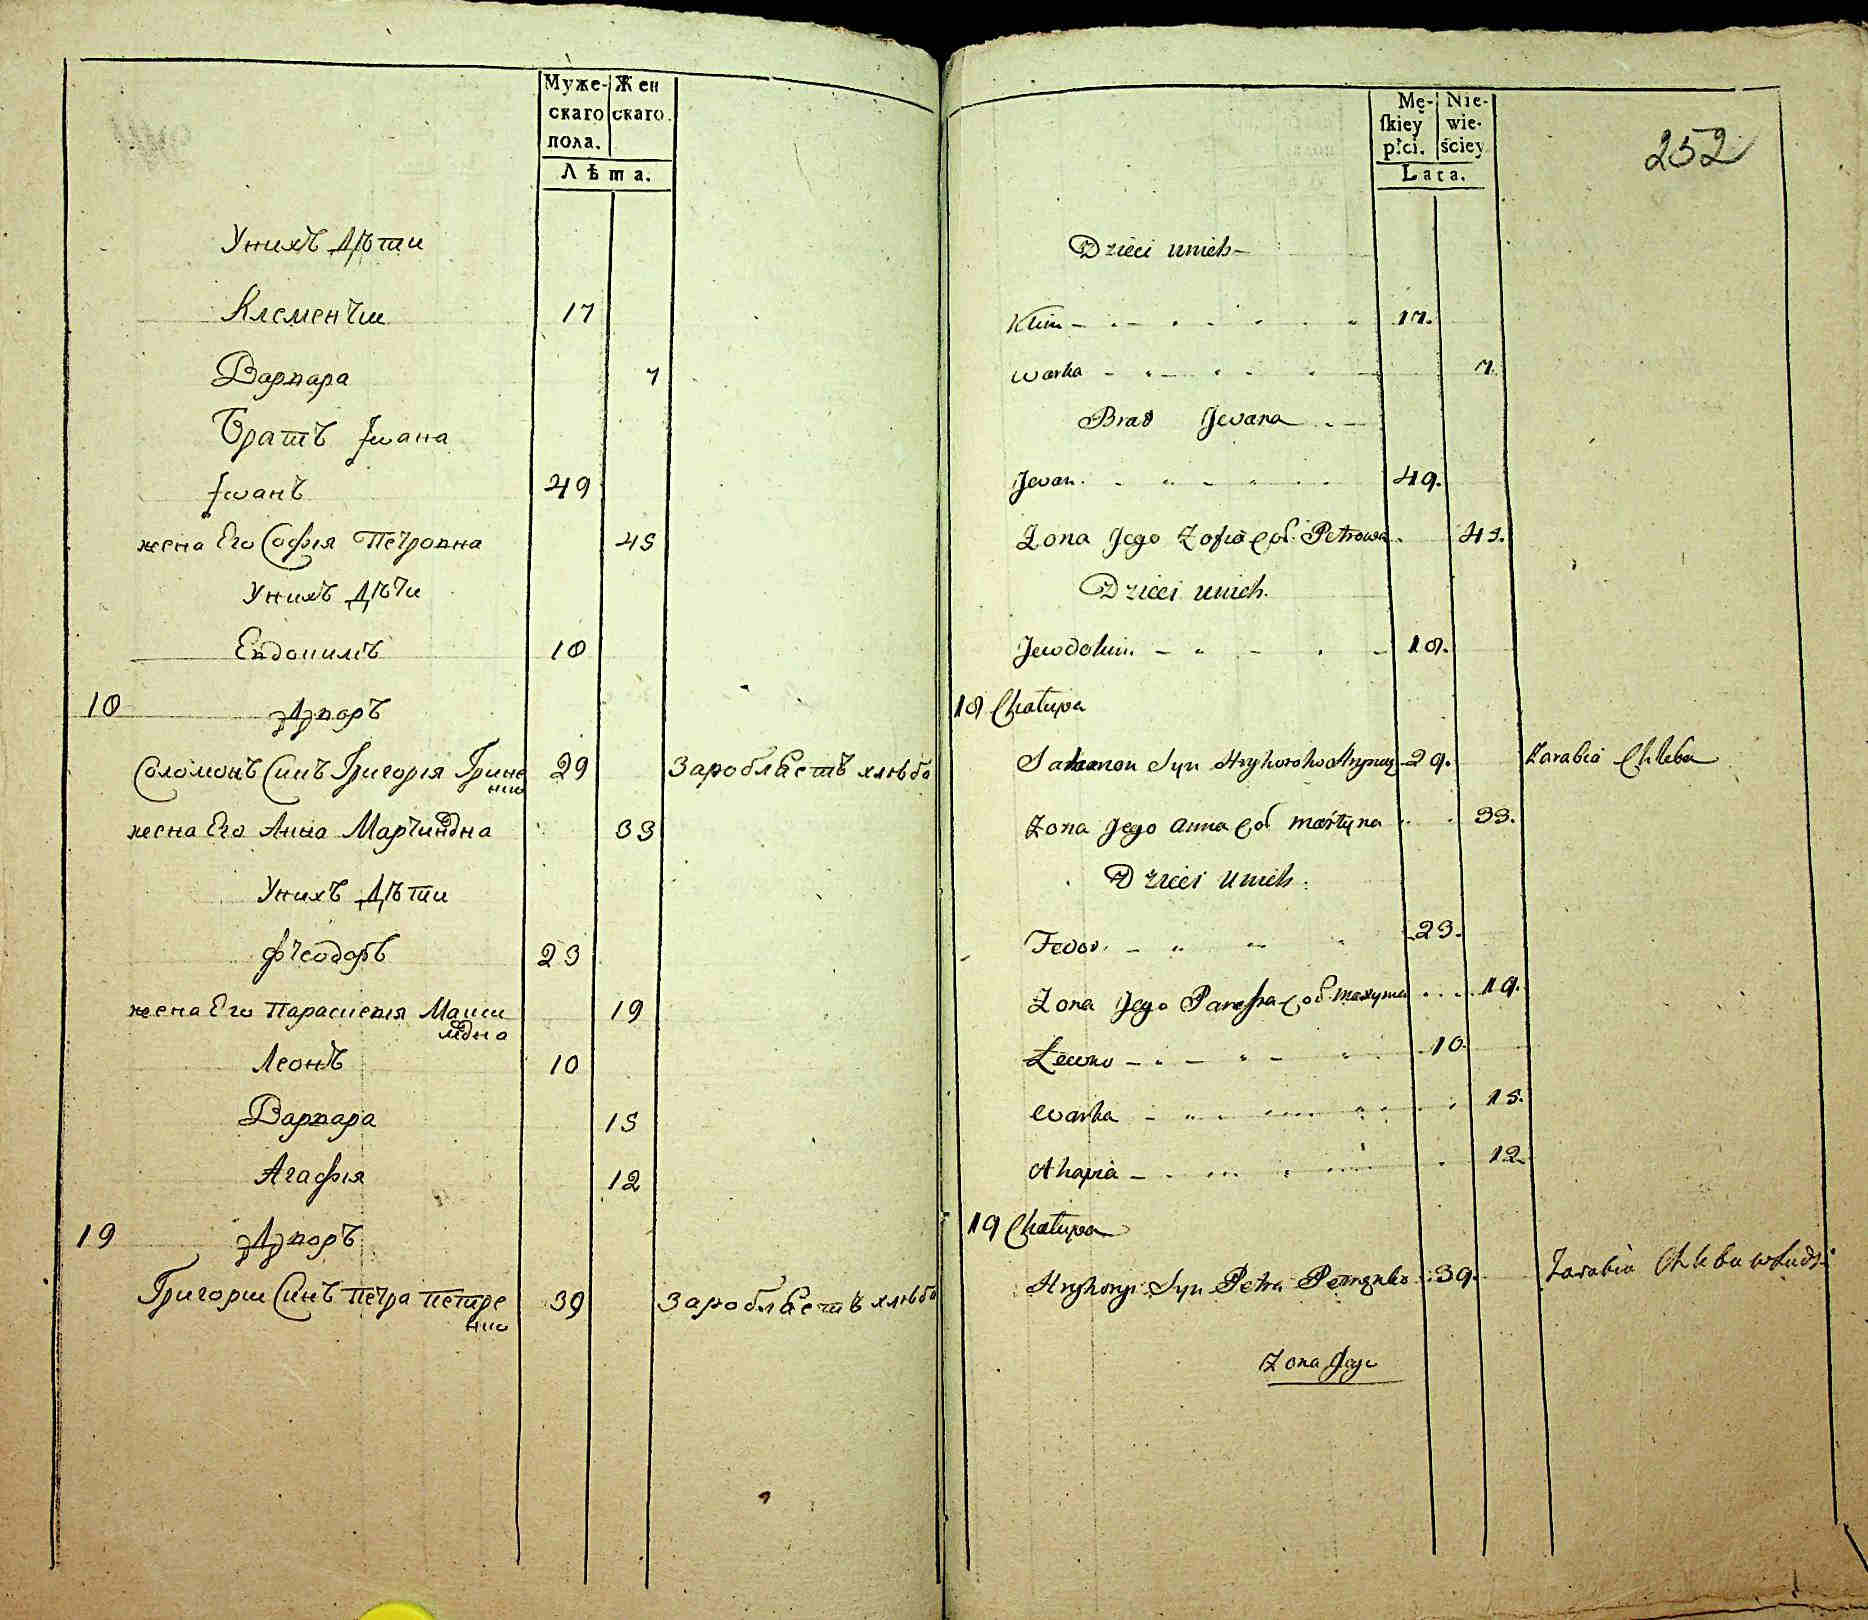 Муже-
скаго
пола.
Жен
скаго.
Лѣта.
Унихъ Дѣти
Клементий 17
Варвара 7
Братъ Ивана
Иванъ 49
жена Его Софія Петровна 45
Унихъ Дѣти
Евдокимъ 18
18 Дворъ
Соломонъ Синъ Григорія Грине
нко 29 Заробляетъ хлѣба
жена Его Анна Мартиновна 33
Унихъ Дѣти
Фтеодоръ 23
жена Его Параскевія Макси
мовна 19
Леонъ 10
Варвара 15
Агафія 12
19 Дворъ
Григорий Синъ Петра Петре
нко 39 Заробляетъ хлѣба
Mę-
skiey
płci.
Nie-
wie-
ściey
Lata.
252
Dzieci unich
Klim 17.
Warka 7.
Brat Jwana
Jwan. 49.
Zona Jego Zofia Cór. Petrowa 45.
Dzieci unich.
Jewdokim. 18.
18 Chałupa
Salomon Syn Hryhoroho 29. Zarabia Chleba
Zona Jego Anna Cór Martyna 33.
Dzieci unich.
Fedor. 23.
Zona Jego Paraska Cór Maxyma 19.
Lewko 10.
Warka 15.
Ahapia 12.
19 Chałupa
Hryhory Syn Petra Petrenko 39. Zarabia Chleba wludzi
Zona Jego